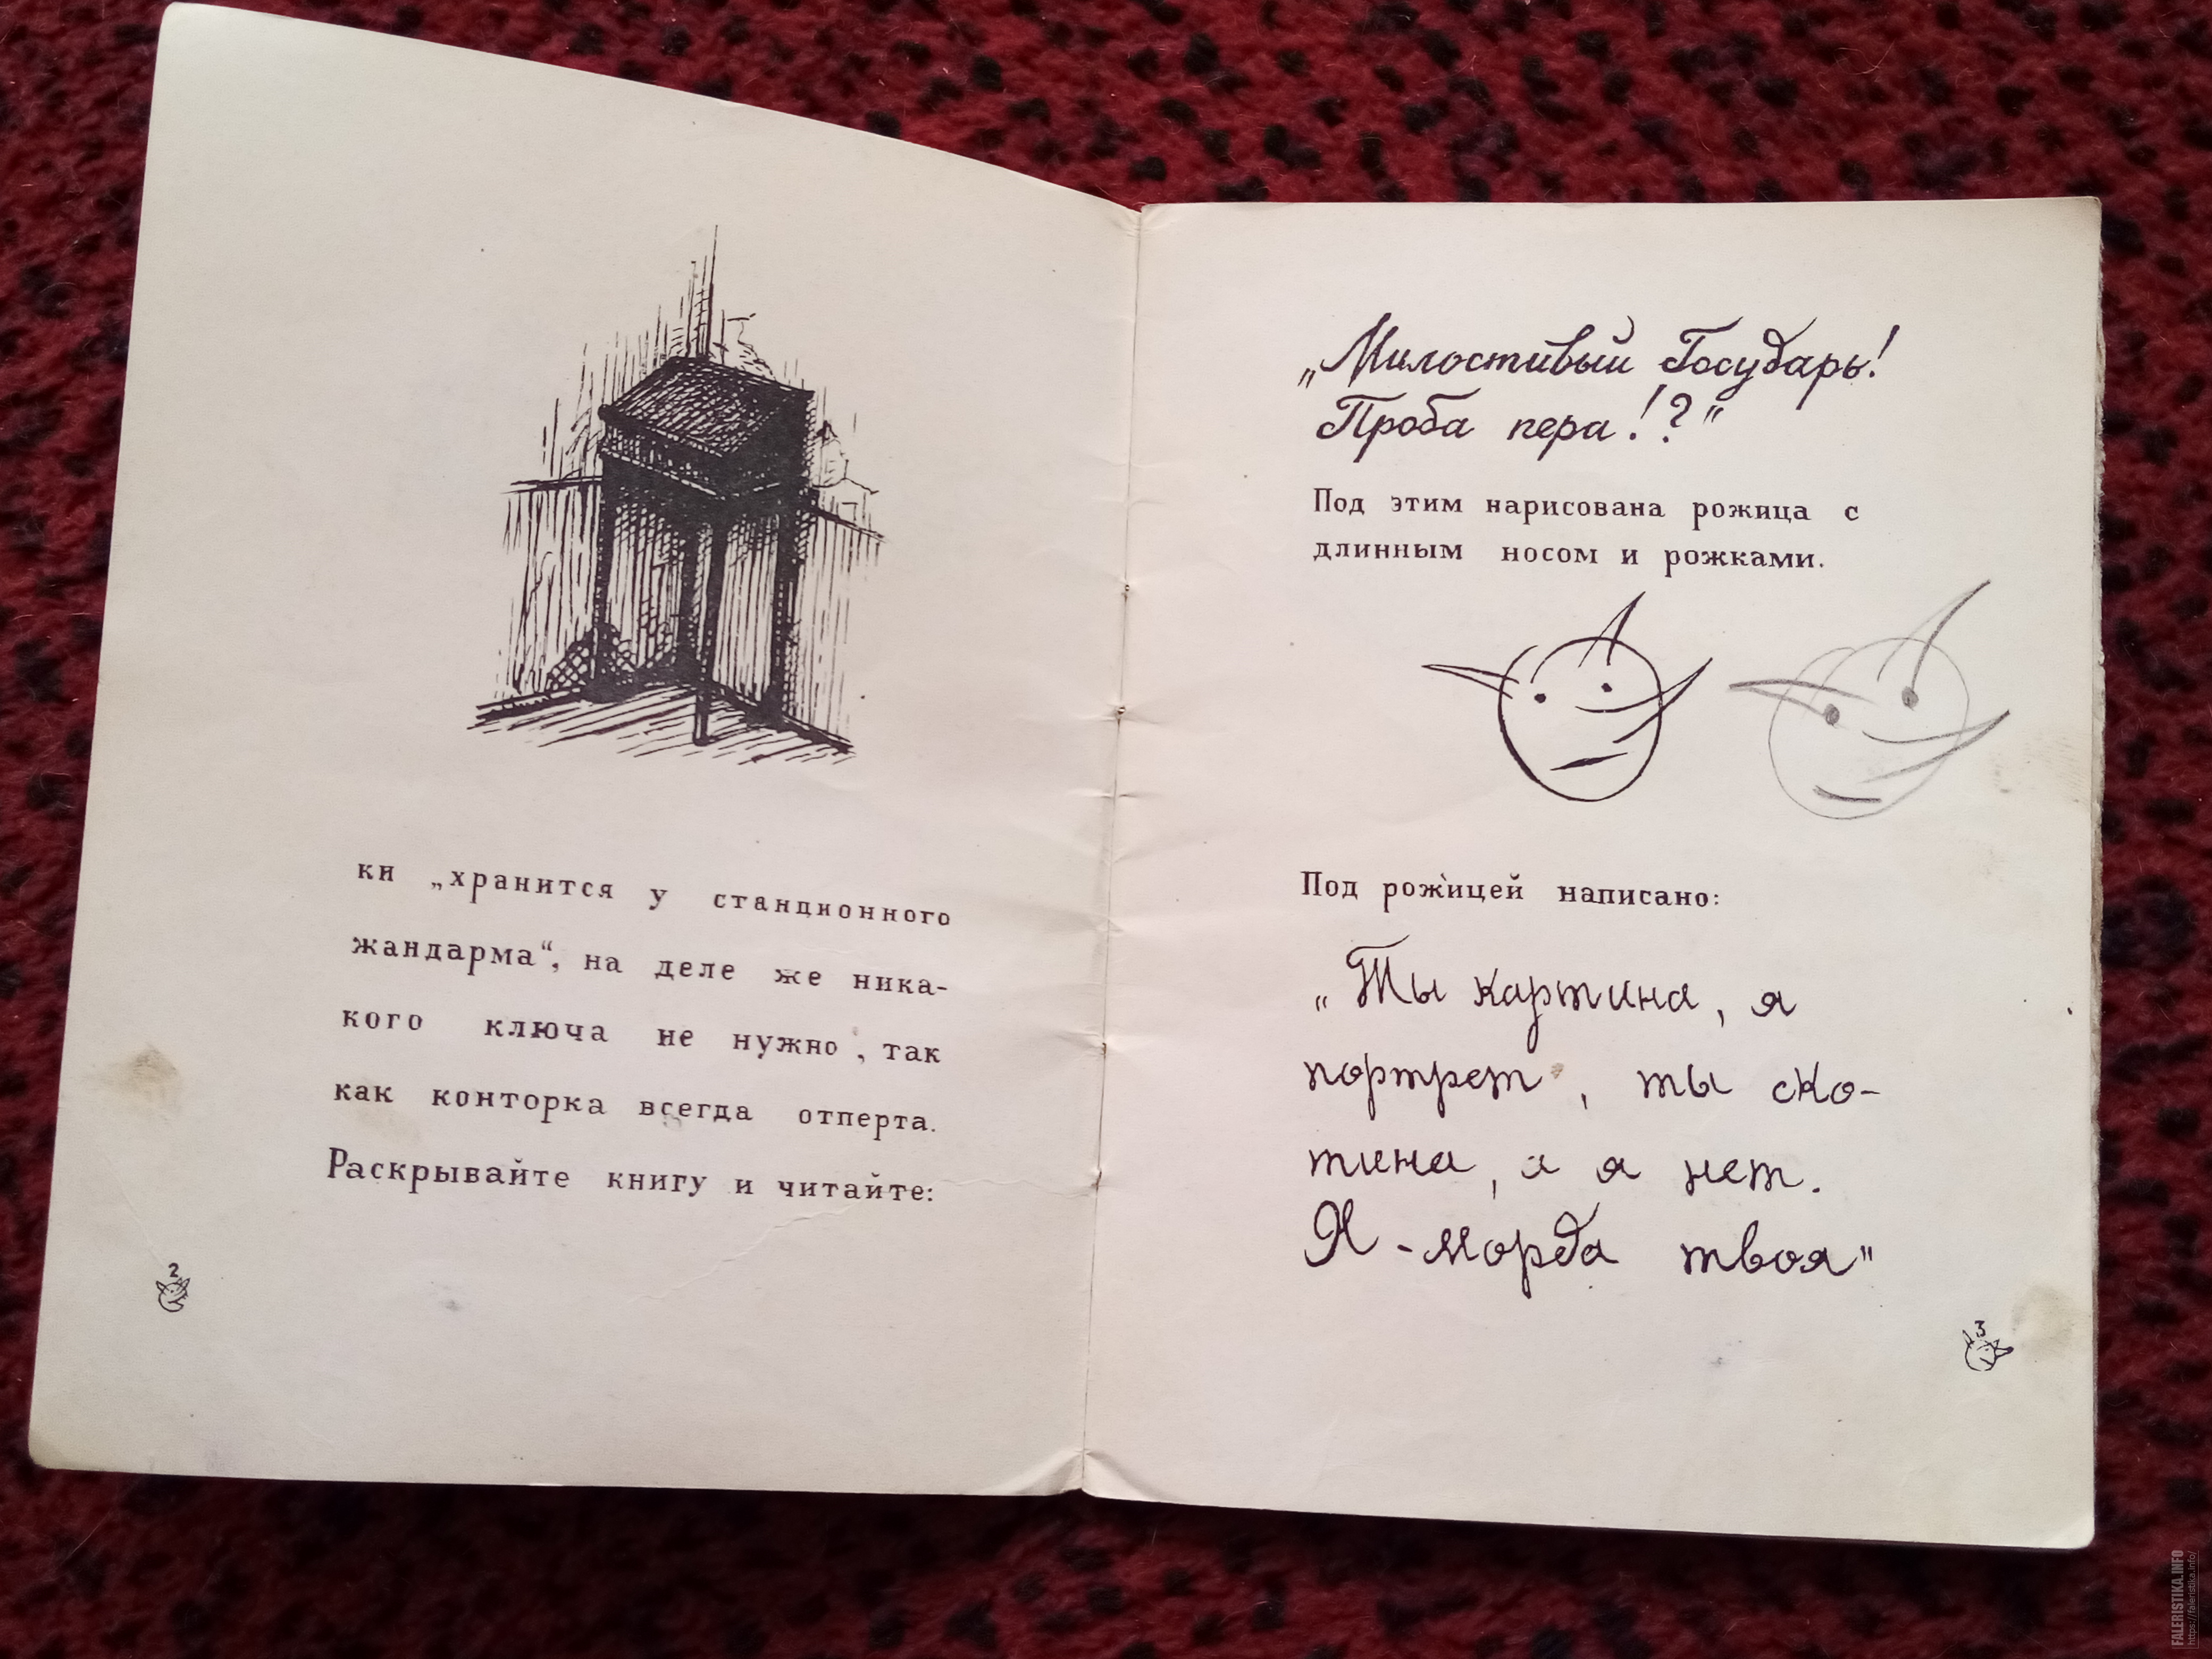 ки „хранится у станционного
жандарма“, на деле же ника-
кого ключа не нужно, так
как конторка всегда отперта.
Раскрывайте книгу и читайте:
2
„Милостивый Государь!
Проба пера!?“
Под этим нарисована рожица с
длинным носом и рожками.
Под рожицей написано:
„Ты картина, я
портрет, ты ско-
тина, а я нет.
Я - морда твоя“
3
FALERISTIKA.INFO
https://faleristika.info/